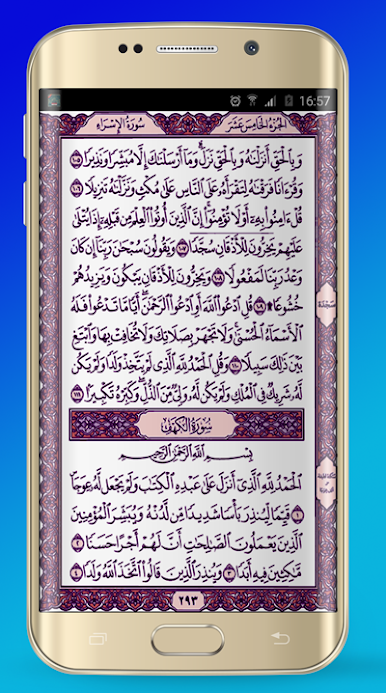 16:57
سُورَةُ الإِسْرَاءِ
الجُزْءُ الخَامِسَ عَشَرَ
وَبِالْحَقِّ أَنزَلْنَاهُ وَبِالْحَقِّ نَزَلَ ۗ وَمَا أَرْسَلْنَاكَ إِلَّا مُبَشِّرًا وَنَذِيرًا ١٠٥
وَقُرْءَانًا فَرَقْنَاهُ لِتَقْرَأَهُ عَلَى النَّاسِ عَلَىٰ مُكْثٍ وَنَزَّلْنَاهُ تَنزِيلًا ١٠٦
قُلْ ءَامِنُوا بِهِ أَوْ لَا تُؤْمِنُوا ۚ إِنَّ الَّذِينَ أُوتُوا الْعِلْمَ مِن قَبْلِهِ إِذَا يُتْلَىٰ
عَلَيْهِمْ يَخِرُّونَ لِلْأَذْقَانِ سُجَّدًا ١٠٧ وَيَقُولُونَ سُبْحَانَ رَبِّنَا إِن كَانَ
وَعْدُ رَبِّنَا لَمَفْعُولًا ١٠٨ وَيَخِرُّونَ لِلْأَذْقَانِ يَبْكُونَ وَيَزِيدُهُمْ
خُشُوعًا ۩ ١٠٩ قُلِ ادْعُوا اللَّهَ أَوِ ادْعُوا الرَّحْمَٰنَ ۖ أَيًّا مَّا تَدْعُوا فَلَهُ
الْأَسْمَاءُ الْحُسْنَىٰ ۚ وَلَا تَجْهَرْ بِصَلَاتِكَ وَلَا تُخَافِتْ بِهَا وَابْتَغِ
بَيْنَ ذَٰلِكَ سَبِيلًا ١١٠ وَقُلِ الْحَمْدُ لِلَّهِ الَّذِي لَمْ يَتَّخِذْ وَلَدًا وَلَمْ يَكُن
لَّهُ شَرِيكٌ فِي الْمُلْكِ وَلَمْ يَكُن لَّهُ وَلِيٌّ مِّنَ الذُّلِّ ۖ وَكَبِّرْهُ تَكْبِيرًا ١١١
سُورَةُ الكَهْفِ
بِسْمِ اللَّهِ الرَّحْمَٰنِ الرَّحِيمِ
الْحَمْدُ لِلَّهِ الَّذِي أَنزَلَ عَلَىٰ عَبْدِهِ الْكِتَابَ وَلَمْ يَجْعَل لَّهُ عِوَجًا ۜ
١ قَيِّمًا لِّيُنذِرَ بَأْسًا شَدِيدًا مِّن لَّدُنْهُ وَيُبَشِّرَ الْمُؤْمِنِينَ
الَّذِينَ يَعْمَلُونَ الصَّالِحَاتِ أَنَّ لَهُمْ أَجْرًا حَسَنًا ٢
مَّاكِثِينَ فِيهِ أَبَدًا ٣ وَيُنذِرَ الَّذِينَ قَالُوا اتَّخَذَ اللَّهُ وَلَدًا ٤
سَجْدَة
٢٩٣